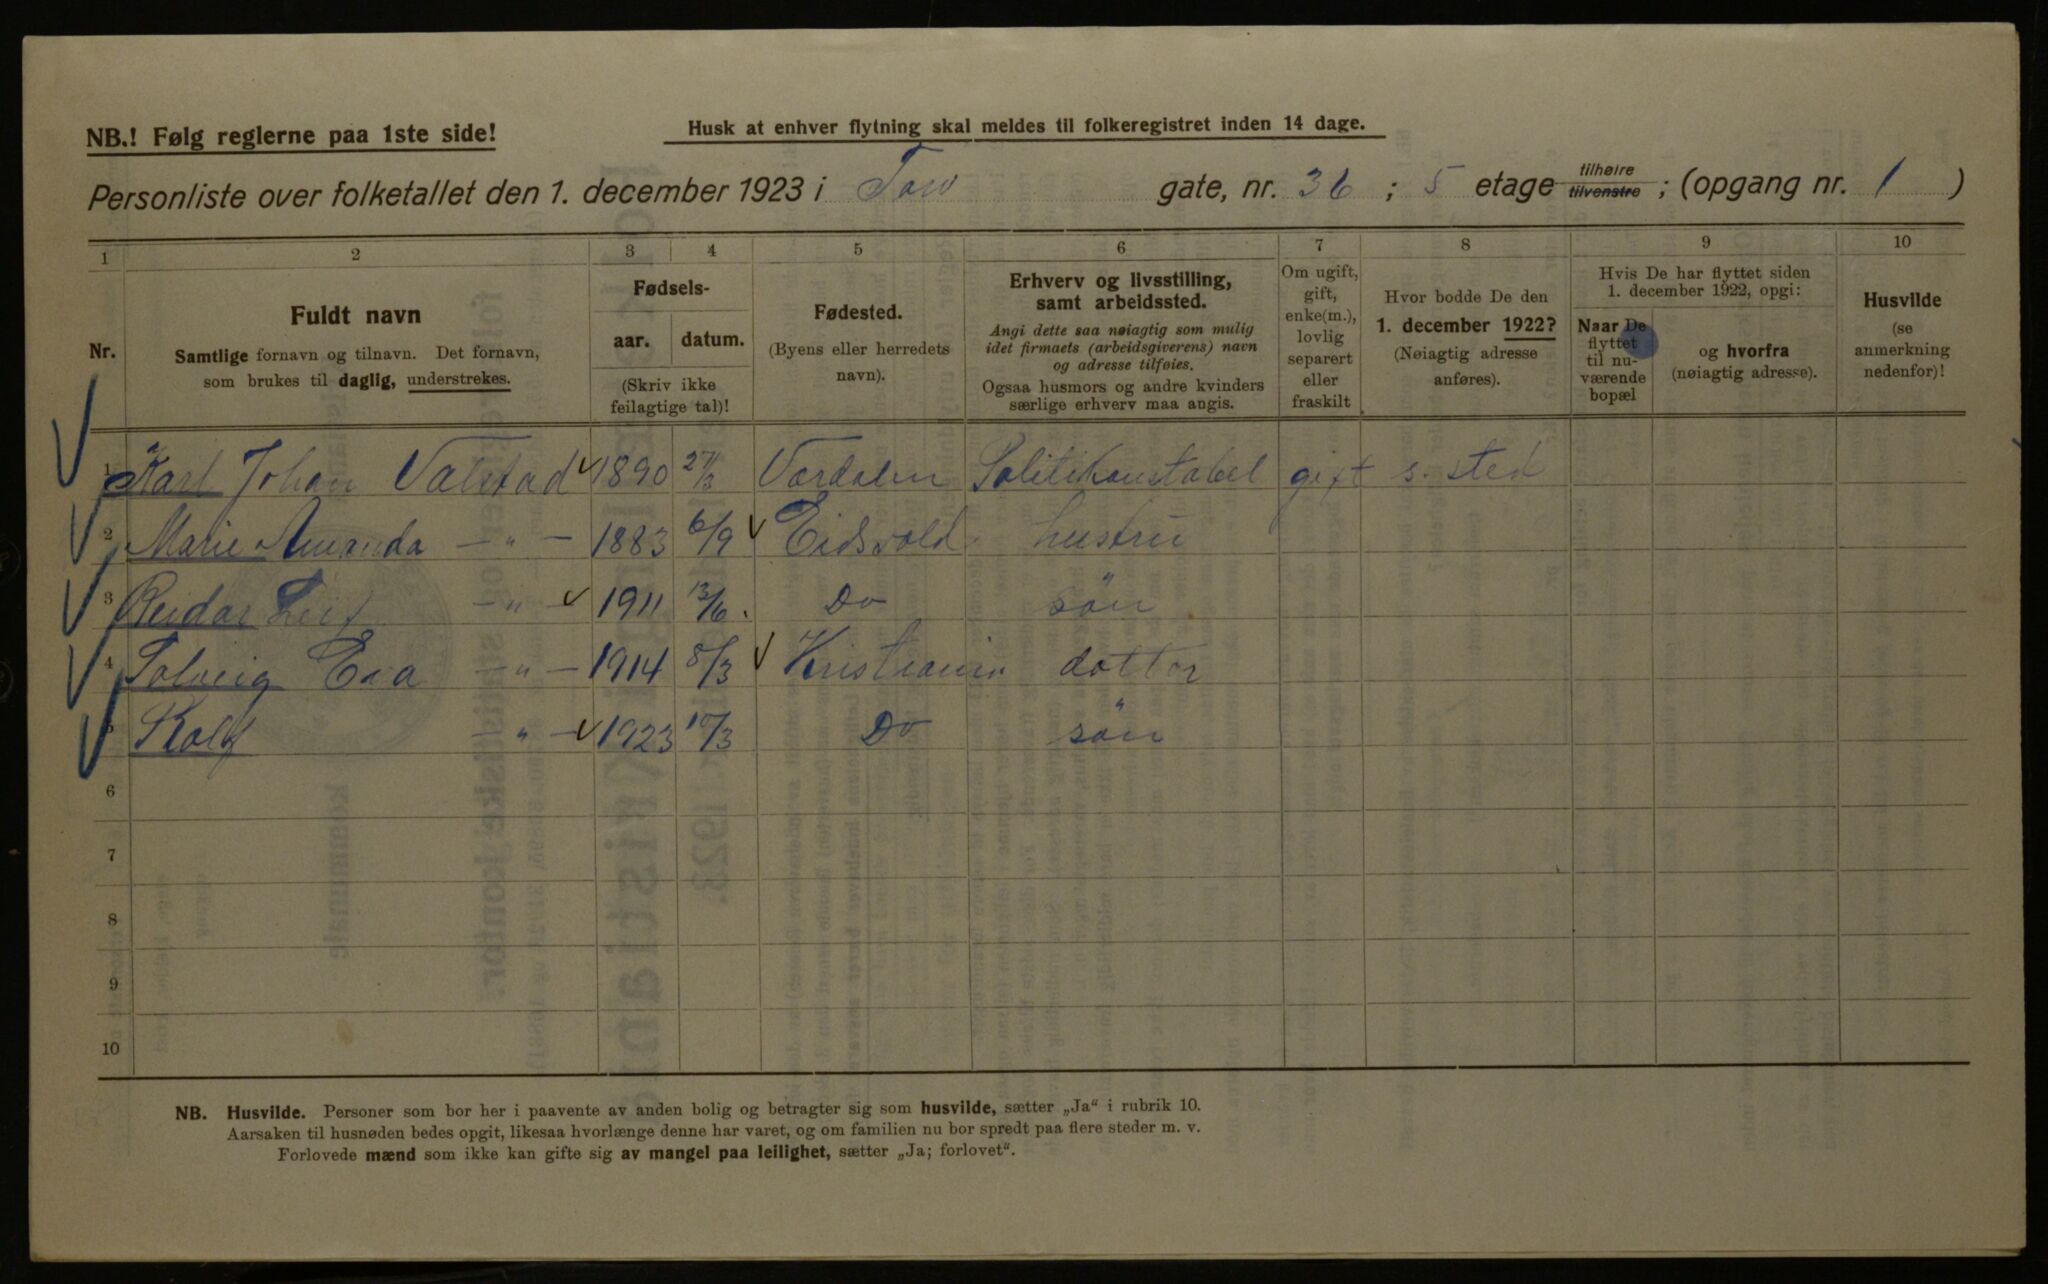 NB.! Følg reglerne paa 1ste side!
Husk at enhver flytning skal meldes til folkeregistret inden 14 dage.
Personliste over folketallet den 1. december 1923 i gate, nr. 36 ; 5 etage tilhøire tilvenstre ; (opgang nr. 1 )
1 2 3 4 5 6 7 8 9 10
Nr.
Fuldt navn
Samtlige fornavn og tilnavn. Det fornavn,
som brukes til daglig, understrekes.
Fødsels-
aar. datum.
(Skriv ikke
feilagtige tal)!
Fødested.
(Byens eller herredets
navn).
Erhverv og livsstilling,
samt arbeidssted.
Angi dette saa nøiagtig som mulig
idet firmaets (arbeidsgiverens) navn
og adresse tilføies.
Ogsaa husmors og andre kvinders
særlige erhverv maa angis.
Om ugift,
gift,
enke(m.),
lovlig
separert
eller
fraskilt
Hvor bodde De den
1. december 1922?
(Nøiagtig adresse
anføres).
Hvis De har flyttet siden
1. december 1922, opgi:
Naar De
flyttet
til nu-
værende
bopæl
og hvorfra
(nøiagtig adresse).
Husvilde
(se
anmerkning
nedenfor)!
1 Karl Johan Valstad 1890 27/3 Værdalen Politikonstabel gift s. sted
2 Marie Amanda — " — 1883 6/9 Eidsvold hustru
3 Reidar Leif — " — 1911 13/6. Do søn
4 Solveig Eva — " — 1914 8/3 Kristiania dotter
5 Rolf — " — 1923 10/3 Do søn
6
7
8
9
10
NB. Husvilde. Personer som bor her i paavente av anden bolig og betragter sig som husvilde, sætter „Ja“ i rubrik 10.
Aarsaken til husnøden bedes opgit, likesaa hvorlænge denne har varet, og om familien nu bor spredt paa flere steder m. v.
Forlovede mænd som ikke kan gifte sig av mangel paa leilighet, sætter „Ja; forlovet“.